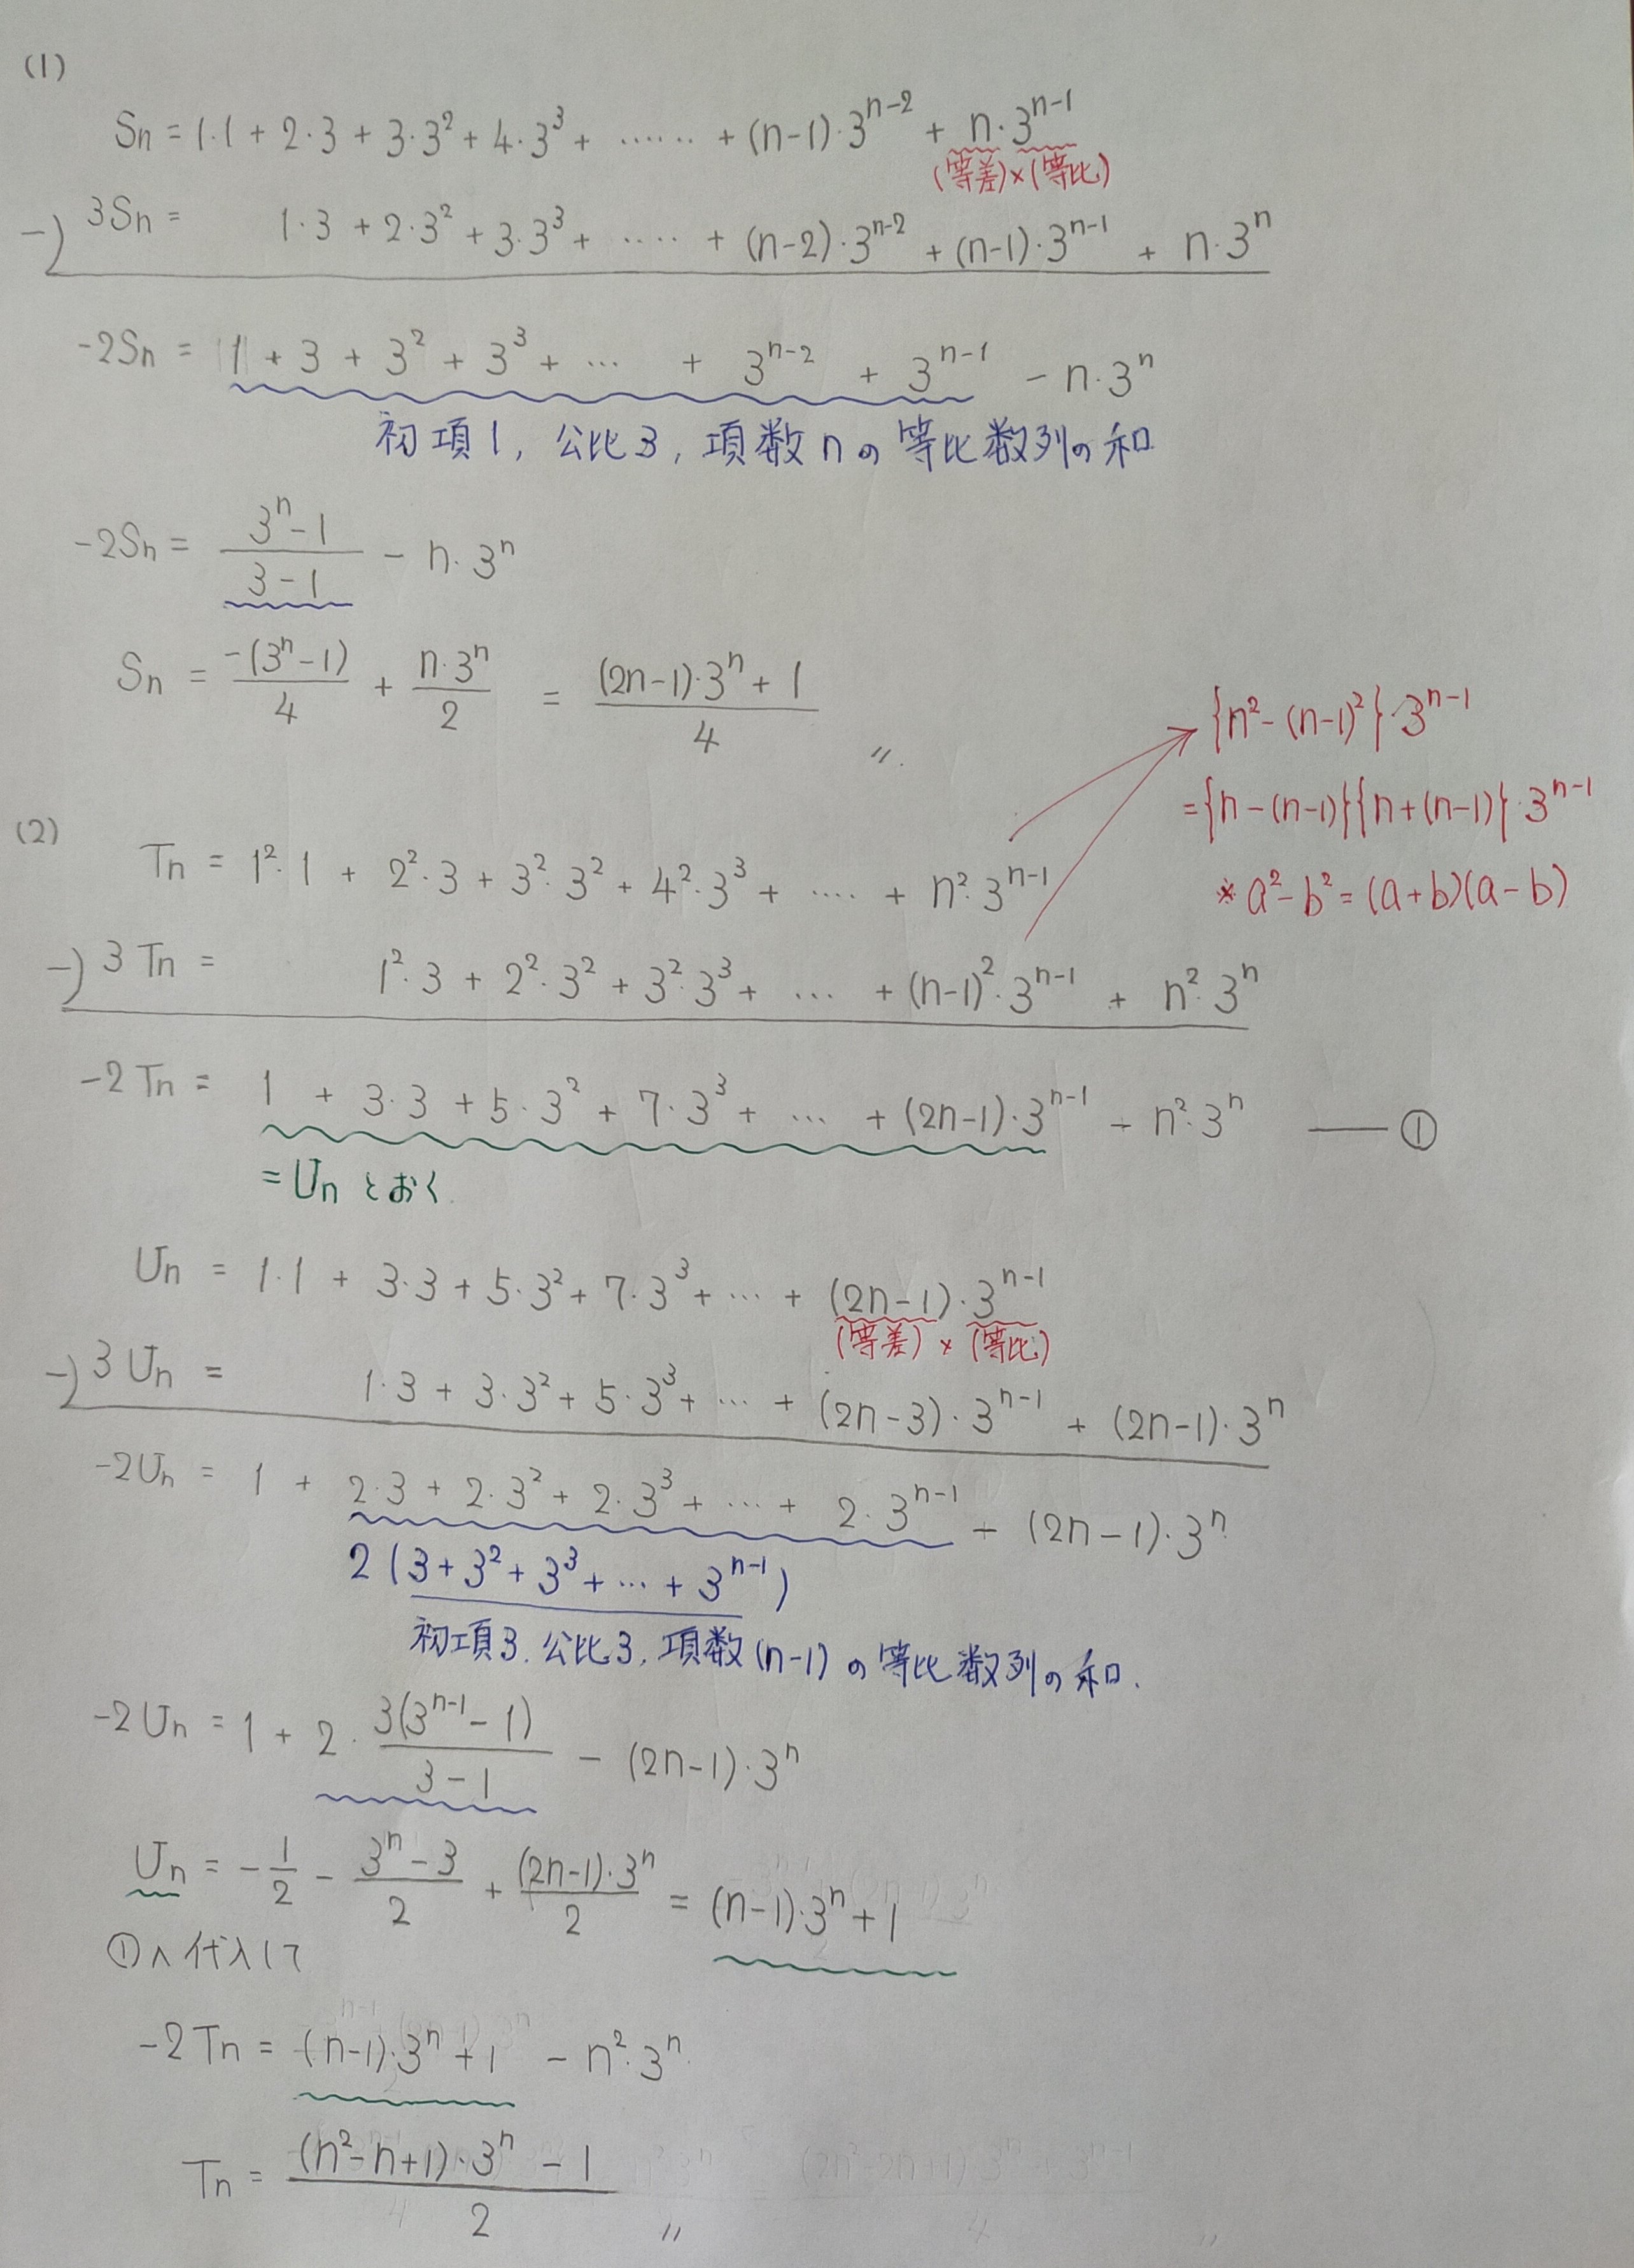 (1)
Sn = 1·1 + 2·3 + 3·3² + 4·3³ + ······ + (n-1)·3ⁿ⁻² + n·3ⁿ⁻¹
(等差)×(等比)
-) 3Sn = 1·3 + 2·3² + 3·3³ + ····· + (n-2)·3ⁿ⁻² + (n-1)·3ⁿ⁻¹ + n·3ⁿ
-2Sn = 1 + 3 + 3² + 3³ + ··· + 3ⁿ⁻² + 3ⁿ⁻¹ - n·3ⁿ
初項1, 公比3, 項数nの等比数列の和
-2Sn = (3ⁿ-1)/(3-1) - n·3ⁿ
Sn = -(3ⁿ-1)/4 + n·3ⁿ/2 = ((2n-1)·3ⁿ+1)/4 〃.
{n²-(n-1)²}·3ⁿ⁻¹
={n-(n-1)}{n+(n-1)}·3ⁿ⁻¹
* a²-b²=(a+b)(a-b)
(2)
Tn = 1²·1 + 2²·3 + 3²·3² + 4²·3³ + ···· + n²·3ⁿ⁻¹
-) 3Tn = 1²·3 + 2²·3² + 3²·3³ + ··· + (n-1)²·3ⁿ⁻¹ + n²·3ⁿ
-2Tn = 1 + 3·3 + 5·3² + 7·3³ + ··· + (2n-1)·3ⁿ⁻¹ - n²·3ⁿ —— ①
=Unとおく
Un = 1·1 + 3·3 + 5·3² + 7·3³ + ··· + (2n-1)·3ⁿ⁻¹
(等差)×(等比)
-) 3Un = 1·3 + 3·3² + 5·3³ + ··· + (2n-3)·3ⁿ⁻¹ + (2n-1)·3ⁿ
-2Un = 1 + 2·3 + 2·3² + 2·3³ + ··· + 2·3ⁿ⁻¹ - (2n-1)·3ⁿ
2(3+3²+3³+···+3ⁿ⁻¹)
初項3, 公比3, 項数(n-1)の等比数列の和.
-2Un = 1 + 2·3(3ⁿ⁻¹-1)/(3-1) - (2n-1)·3ⁿ
Un = -1/2 - (3ⁿ-3)/2 + (2n-1)·3ⁿ/2 = (n-1)·3ⁿ+1
①へ代入して
-2Tn = (n-1)·3ⁿ+1 - n²·3ⁿ
Tn = ((n²-n+1)·3ⁿ-1)/2 〃